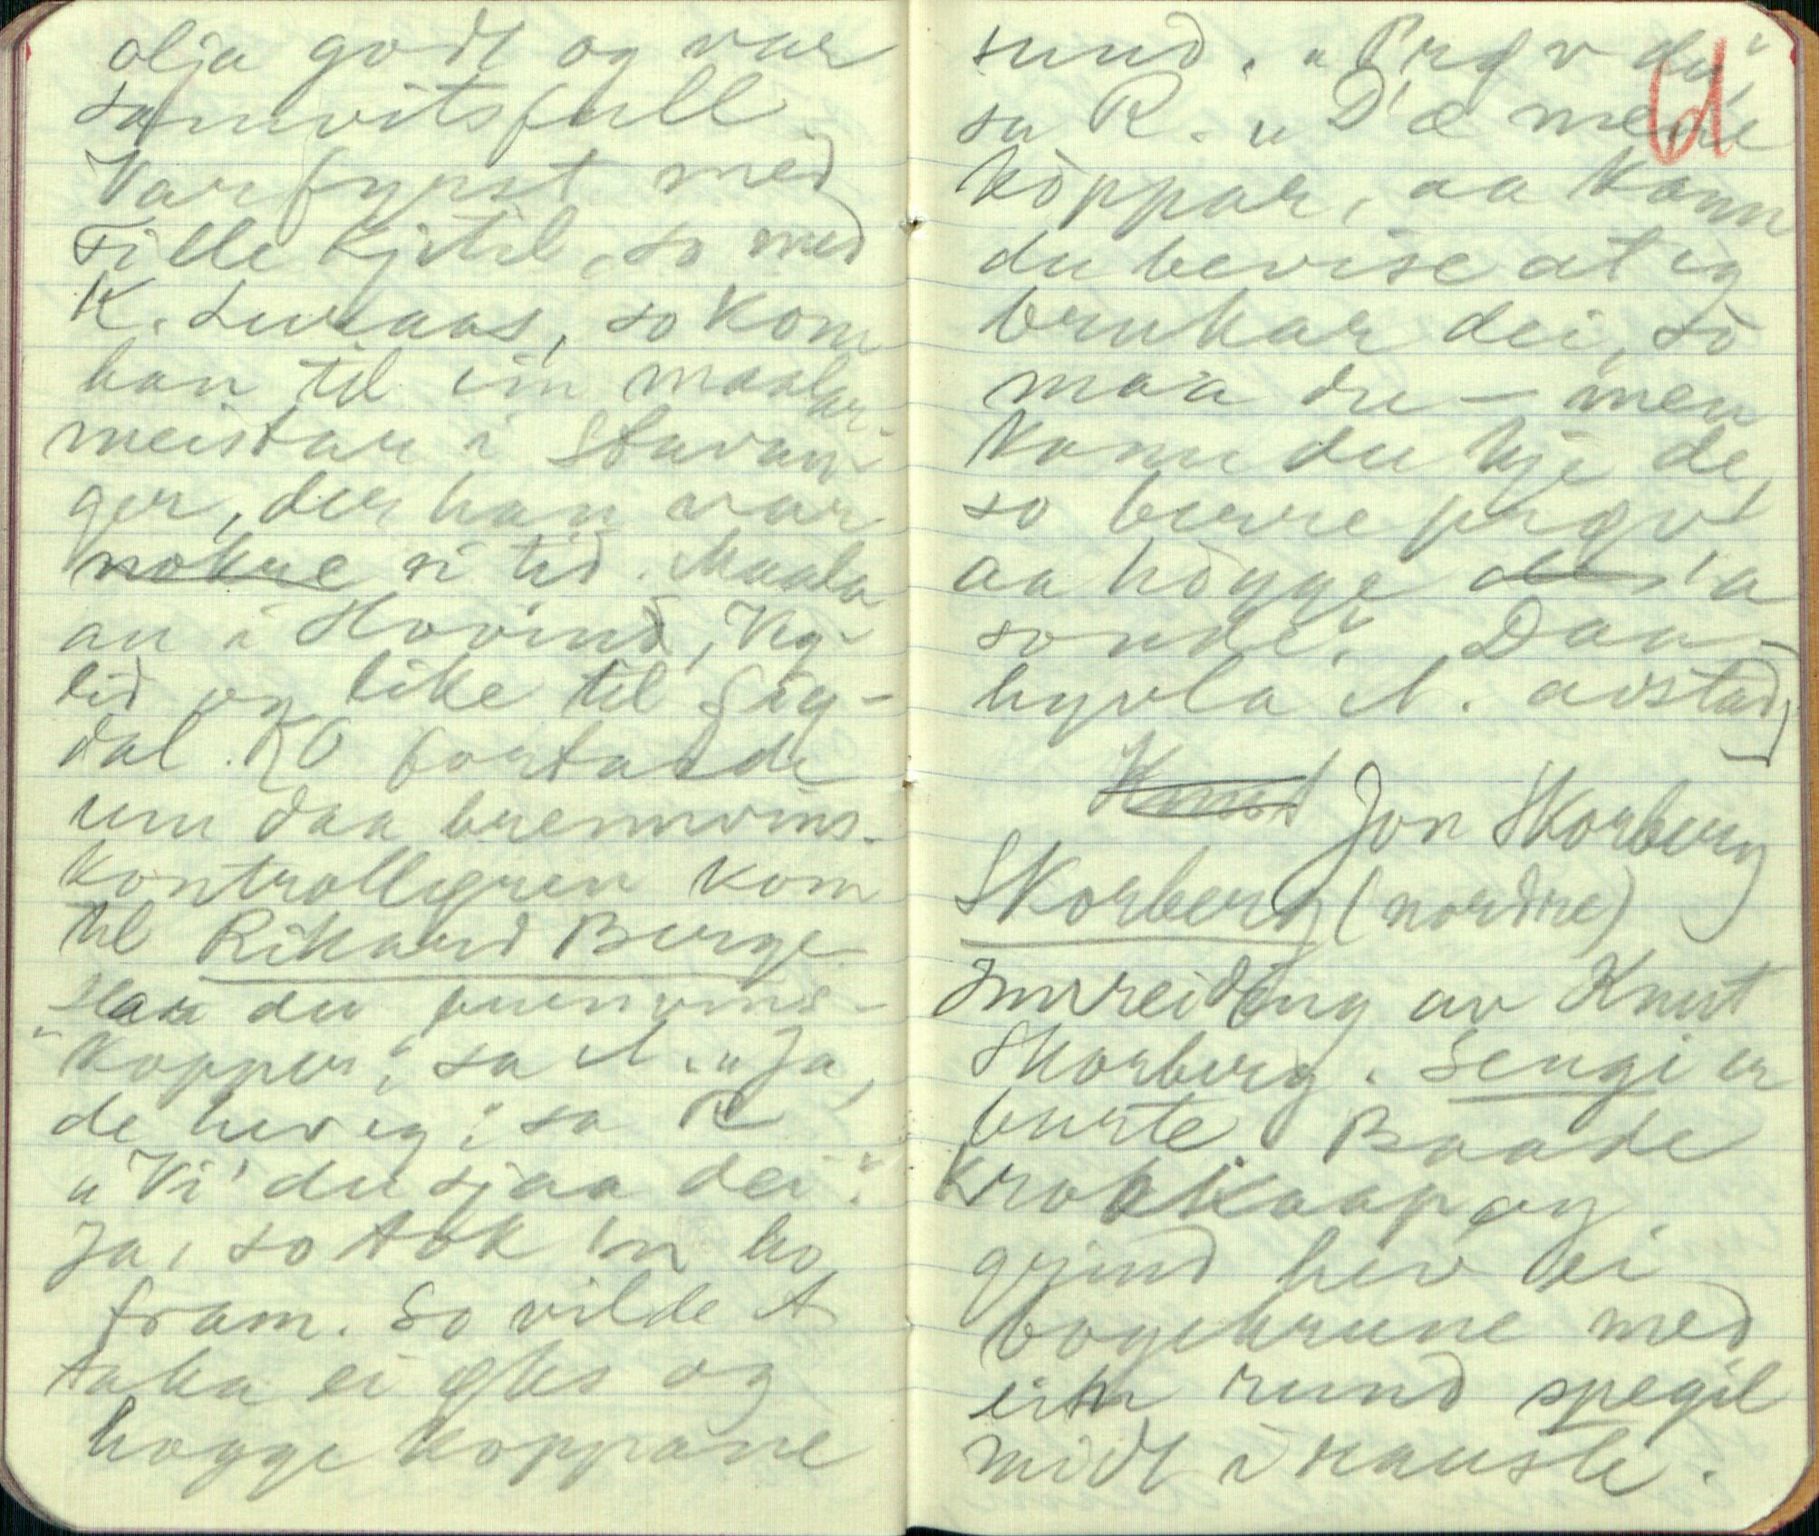 olja godt og var
samvitsfull.
Var fyrst med
Tille Kjetil, so med
K. Luraas, so kom
han til ein maalar-
meistar i Stavan-
ger, der han var
nokre ei tid. Maala
au i Hovind, Veg-
lid og like til Sig-
dal. RO fortalde
um daa brennvins-
kontrolløren kom
til Rikard Berge
Har du brennvins-
"koppar", sa A. "Ja,
de hev eg", sa R
"Vi' du sjaa dei".
Ja, so tok 'n ho
fram. So vilde A
taka ei øks og
hogge koppane
sund. "Prøv du",
sa R. "D'æ meine
koppar, aa kann
du bevise at eg
brukar dei, so
maa du – men
kann du kje de,
so berre prøv
aa hogge dei 'a
sonde". Daa
hyvla A. avstad,
Knut Jon Skorberg
Skorberg (nordre)
Innreiding av Knut
Skorberg. Sengi er
burte Baade
Kroskaap og
grind hev ei
bogekrune med
ein rund spegil
midt i rauste.
61